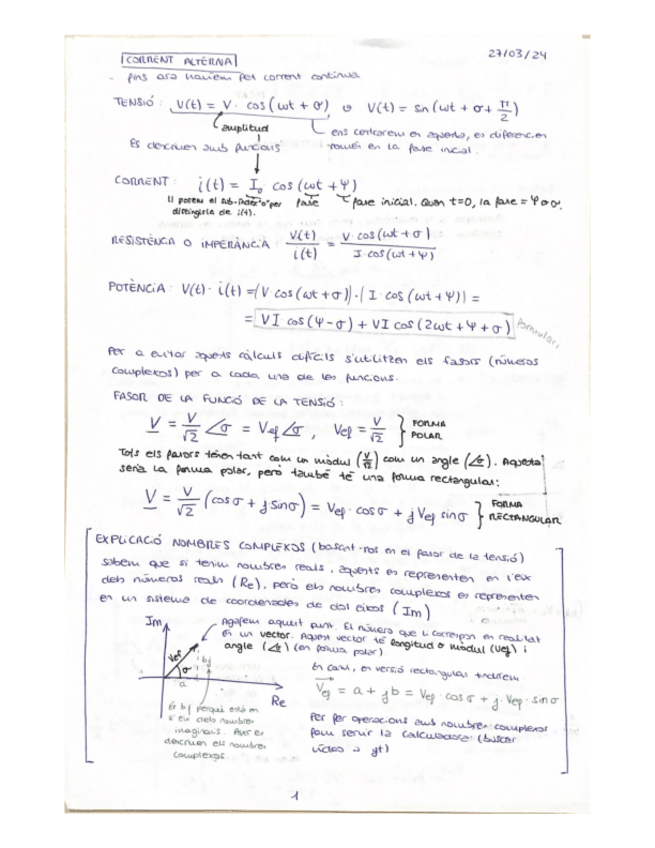 27/03/24
CORRENT ALTERNA
- fins ara havíem fet corrent contínua
TENSIÓ: V(t) = V · cos (ωt + σ) o V(t) = sin (ωt + σ + π/2)
amplitud
ens centrarem en aquesta, es diferencien
Es descriuen amb funcions
només en la fase inicial.
CORRENT: i(t) = I₀ cos (ωt + Ψ)
li posem el sub-índex "o" per
distingir-la de i(t).
fase
fase inicial. Quan t=0, la fase = Ψ o σ.
RESISTÈNCIA O IMPEDÀNCIA: V(t)/i(t) = V·cos(ωt + σ)/I·cos(ωt + Ψ)
POTÈNCIA: V(t) · i(t) = (V cos (ωt + σ)) · (I · cos (ωt + Ψ)) =
= VI cos (Ψ - σ) + VI cos (2ωt + Ψ + σ)
formulari
Per a evitar aquests càlculs difícils s'utilitzen els fasors (números
complexos) per a cada una de les funcions.
FASOR DE LA FUNCIÓ DE LA TENSIÓ:
V = V/√2 ∠σ = Vef ∠σ , Vef = V/√2 } FORMA
POLAR
Tots els fasors tenen tant com un mòdul (V/√2) com un angle (∠σ). Aquesta
seria la forma polar, però també té una forma rectangular:
V = V/√2 (cos σ + j·sin σ) = Vef · cos σ + j Vef sin σ } FORMA
RECTANGULAR
EXPLICACIÓ NOMBRES COMPLEXOS (basant-nos en el fasor de la tensió)
sabem que si tenim nombres reals, aquests es representen en l'eix
dels números reals (Re), però els nombres complexos es representen
en un sistema de coordenades de dos eixos (Im)
Im
Agafem aquest punt. El número que li correspon en realitat
és un vector. Aquest vector té longitud o mòdul (Vef) i
angle (∠σ) (en forma polar)
Vef
σ
bj
a
Re
En canvi, en versió rectangular tindríem
Vef = a + jb = Vef · cos σ + j · Vef · sin σ
És bj perquè està en
l'eix dels nombres
imaginaris. Així es
descriuen els nombres
complexos.
Per fer operacions amb nombres complexos
fem servir la calculadora: (buscar
vídeo a yt)
1